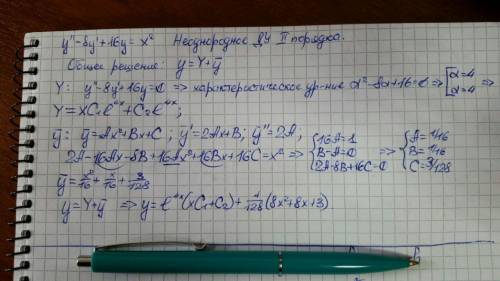 y''-8y'+16y=x² Неоднородное ДУ II порядка.
Общее решение: y=Y+ȳ
Y: y''-8y'+16y=0 => характеристическое ур-ние α²-8α+16=0 => [α=4 α=4 =>
Y=xC₁e⁴ˣ+C₂e⁴ˣ;
ȳ: ȳ=Ax²+Bx+C; y'=2Ax+B; y''=2A;
2A-16Ax-8B+16Ax²+16Bx+16C=x² => {16A=1 B-A=0 2A-8B+16C=0 => {A=1/16 B=1/16 C=3/128
ȳ=x²/16+x/16+3/128
y=Y+ȳ => y=e⁴ˣ(xC₁+C₂)+1/128(8x²+8x+3)